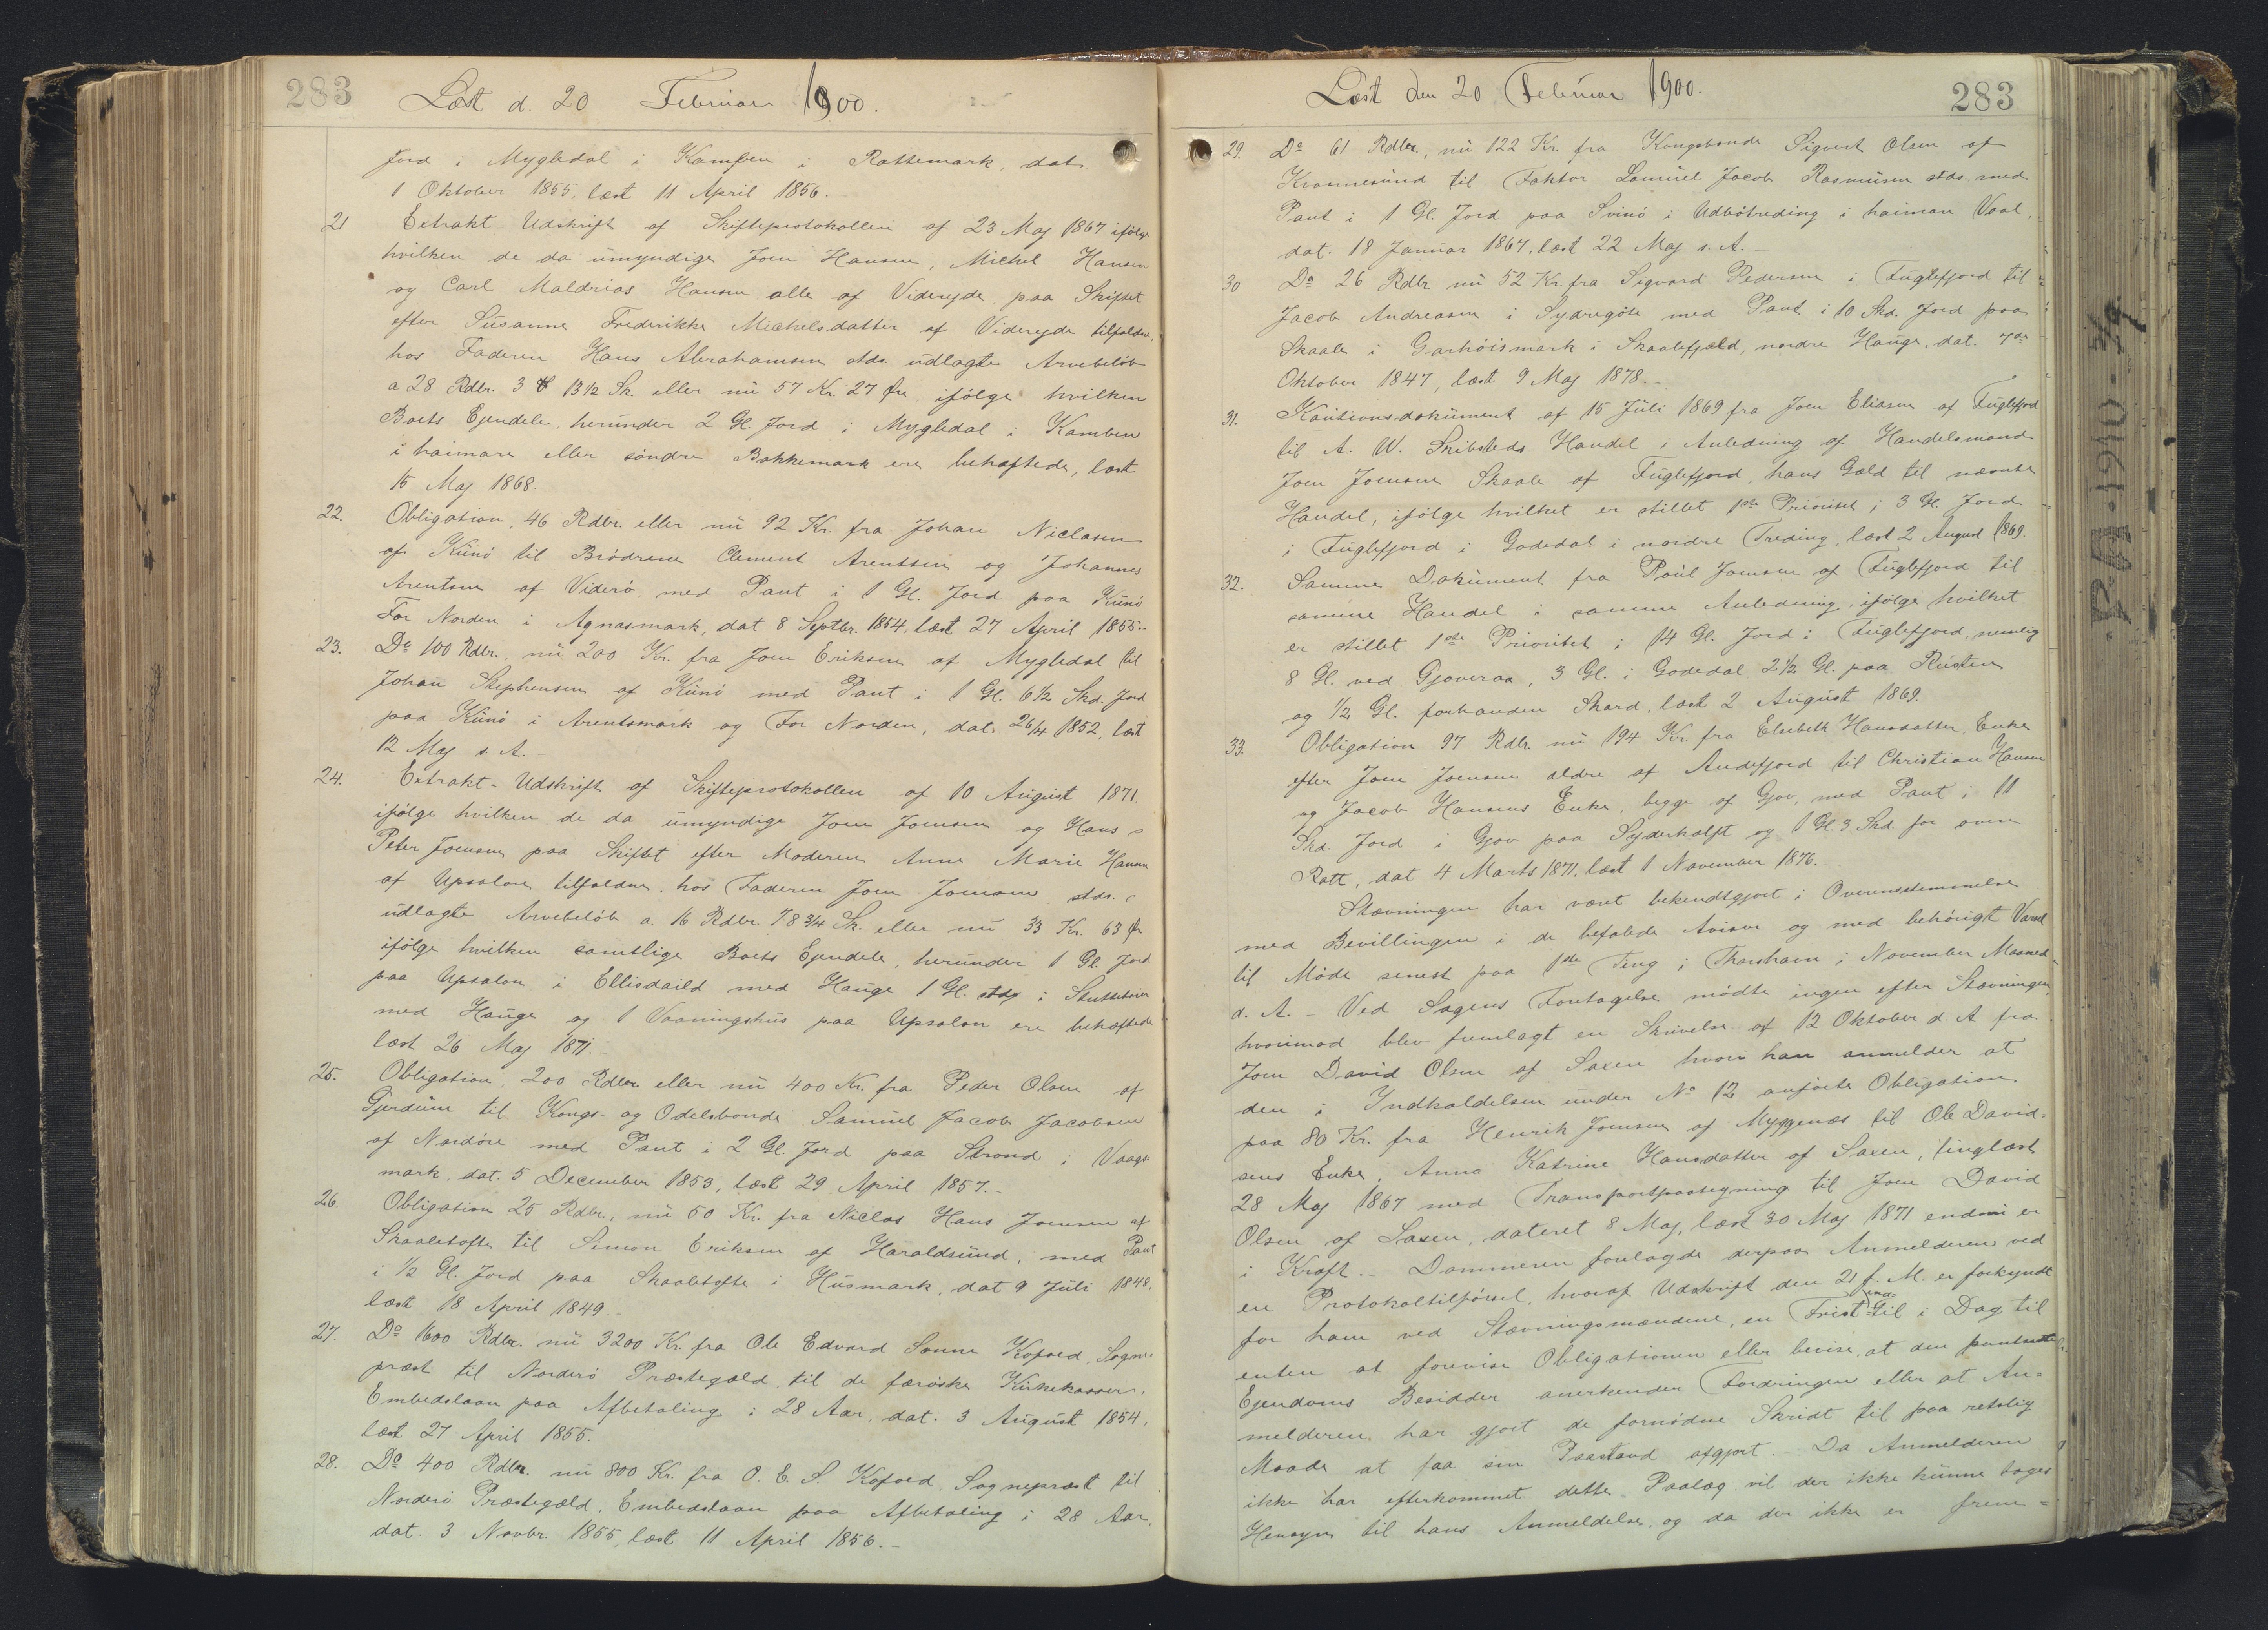 283
Læst d. 20 Februar 1900.
Jord i Mygledal i Kamben i Rattemark, dat.
1 Oktober 1855, læst 11 April 1856.
21 Extrakt-Udskrift af Skifteprotokollen af 23 Maj 1867 ifølge
hvilken de da umyndige Joen Hansen, Michel Hansen
og Carl Maldrias Hansen alle af Viderejde paa Skiftet
efter Susanne Frederikke Michelsdatter af Viderejde tilfaldne,
hos Faderen Hans Abrahamsen stds. udlagte Arvebeløb
a 28 Rdlr. 3 13½ Sk. eller nu 57 Kr. 27 Øre ifølge hvilken
Boets Ejendele, herunder 2 Gl. Jord i Mygledal i Kamben
i haimare eller søndre Bakkemark ere behæftede, læst
15 Maj 1868.
22. Obligation, 46 Rdlr. eller nu 92 Kr. fra Johan Niclasen
af Kunø til Brødrene Clement Arentsen og Johannes
Arentsen af Viderø med Pant i 1 Gl. Jord paa Kunø
For Norden i Agnasmark, dat 8 Septbr. 1854, læst 27 April 1855.
23. Do 100 Rdlr. nu 200 Kr. fra Joen Eriksen af Mygledal til
Johan Stephensen af Kunø med Pant i 1 Gl. 6½ Skd. Jord
paa Kunø i Arentsmark og For Norden, dat. 26/4 1852, læst
12 Maj s. A.
24. Extrakt-Udskrift af Skifteprotokollen af 10 August 1871.
ifølge hvilken de da umyndige Joen Joensen og Hans
Peter Joensen paa Skiftet efter Moderen Anne Marie Hansen
af Upsalon tilfaldne, hos Faderen Joen Joensen stds.
udlagte Arvebeløb a. 16 Rdlr. 78¾ Sk. eller nu 33 Kr. 63 Øre
ifølge hvilken samtlige Boets Ejendele, herunder 1 Gl. Jord
paa Upsalon i Ellisdaild med Hauge 1 Gl. stds i
med Hauge og 1 Vaaningshus paa Upsalon ere behæftede
læst 26 Maj 1871.
25. Obligation, 200 Rdlr. eller nu 400 Kr. fra Peder Olsen af
Gjerdum til Kongs- og Odelsbonde Samuel Jacob Jacobsen
af Nordøre med Pant i 2 Gl. Jord paa Strond i Vaags-
mark, dat. 5 December 1853, læst 29 April 1857.
26. Obligation 25 Rdlr., nu 50 Kr. fra Niclas Hans Joensen af
Skaaletofte til Simon Eriksen af Haraldsund, med Pant
i ½ Gl. Jord paa Skaaletofte i Husmark, dat 9 Juli 1848,
læst 18 April 1849.
27. Do 1600 Rdlr. nu 3200 Kr. fra Ole Edvard Sonne Kofoed, Sogne-
præst til Norderø Præstegæld til de færøske Kirkekasser,
Embedslaan paa Afbetaling i 28 Aar, dat. 3 August 1854,
læst 27 April 1855.
28. Do 400 Rdlr. nu 800 Kr. fra O. E. S. Kofoed, Sognepræst til
Norderø Præstegæld, Embedslaan paa Afbetaling i 28 Aar,
dat. 3 Novbr. 1855, læst 11 April 1856.
283
Læst den 20 Februar 1900.
29. Do 61 Rdlr., nu 122 Kr. fra Kongsbonde Sigvert Olsen af
Kvannesund til Faktor Samuel Jacob Rasmussen stds. med
Pant i 1 Gl. Jord paa Svinø i Udbøtreding i haimare Vaal,
dat. 18 Januar 1867, læst 22 Maj s. A.
30 Do 26 Rdlr nu 52 Kr. fra Sigvard Pedersen i Fuglefjord til
Jacob Andreasen i Sydregøte med Pant i 10 Skd. Jord paa
Skaale i Garhöismark i Skaalefjæld, nordre Hauge, dat. 7de
Oktober 1847, læst 9 Maj 1878.
31. Kautionsdokument af 15 Juli 1869 fra Joen Eliasen af Fuglefjord
til A. W. Skibsteds Handel i Anledning af Handelsmand
Joen Joensen Skaale af Fuglefjord, hans Gæld til nævnte
Handel, ifølge hvilket er stillet 1ste Prioritet i 3 Gl. Jord
i Fuglefjord i Godedal i nordre Treding, læst 2 August 1869.
32. Samme Dokument fra Poul Joensen af Fuglefjord til
samme Handel i samme Anledning, ifølge hvilket
er stillet 1ste Prioritet i 14 Gl. Jord i Fuglefjord, nemlig
8 Gl. ved Gjoveraa, 3 Gl. i Godedal 2½ Gl. paa Rusten
og ½ Gl. forhanden Skard, læst 2 August 1869.
33. Obligation 97 Rdlr. nu 194 Kr. fra Elsebeth Hansdatter, Enke
efter Joen Joensen ældre af Andefjord til Christian Hansen
og Jacob Hansens Enke, begge af Gjov, med Pant i 11
Skd. Jord i Gjov paa Syderhalft og 1 Gl. 3 Skd. for oven
Ratt, dat 4 Marts 1871, læst 1 November 1876.
Stævningen har været bekendtgjort i Overensstemmelse
med Bevillingen i de befalede Aviser og med behörigt Varsel
til Møde senest paa 1ste Ting i Thorshavn i November Maaned
d. A. - Ved Sagens Foretagelse mødte ingen efter Stævningen,
hvorimod blev fremlagt en Skrivelse af 12 Oktober d. A fra
Joen David Olsen af Saxen hvori han anmelder at
den i Indkaldelsen under No 12 anførte Obligation
paa 80 Kr. fra Henrik Joensen af Myggenæs til Ole David-
sens Enke, Anna Katrine Hansdatter af Saxen, tinglæst
28 Maj 1867 med Transportpaategning til Joen David
Olsen af Saxen, dateret 8 Maj, læst 30 Maj 1871 endnu er
i Kraft. - Dommeren forelagde derpaa Anmelderen ved
en Protokoltilførsel, hvoraf Udskrift den 21 f. M. er forkyndt
for ham ved Stævningsmændene, en Frist inden til i Dag til
enten at forevise Obligationen eller bevise, at den pantsatte
Ejendoms Besidder anerkender Fordringen eller at An-
melderen har gjort de fornødne Skridt til paa retslig
Maade at faa sin Paastand afgjort. - Da Anmelderen
ikke har efterkommet dette Paalæg vil der ikke kunne tages
Hensyn til hans Anmeldelse, og da der ikke er frem-